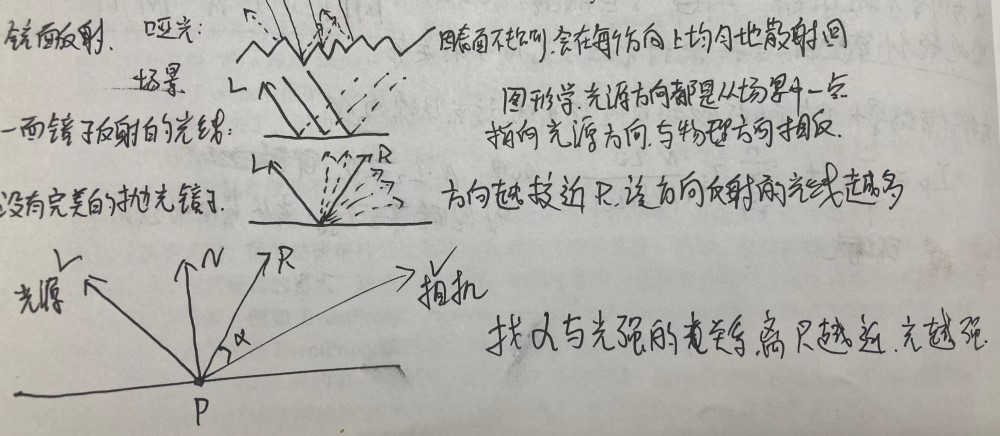 镜面反射. 哑光: 因表面不均匀,会在每个方向上均匀地散射回
场景
图形学光源方向都是从场景中一点
指向光源方向.与物理方向相反.
一面镜子反射的光线: L
没有完美的抛光镜子. L R 方向越接近R,该方向反射的光线越多
光源 L N R V 相机
α
找α与光强的关系,离R越近,光越强.
P